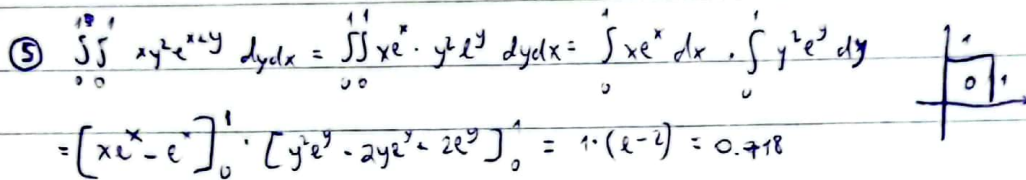 ⑤ ∫₀¹∫₀¹ xy²e^{x+y} dydx = ∫₀¹∫₀¹ xe^x · y²e^y dydx = ∫₀¹ xe^x dx · ∫₀¹ y²e^y dy 1 0 1
= [xe^x - e^x]₀¹ · [y²e^y - 2ye^y + 2e^y]₀¹ = 1·(e-2) = 0.718